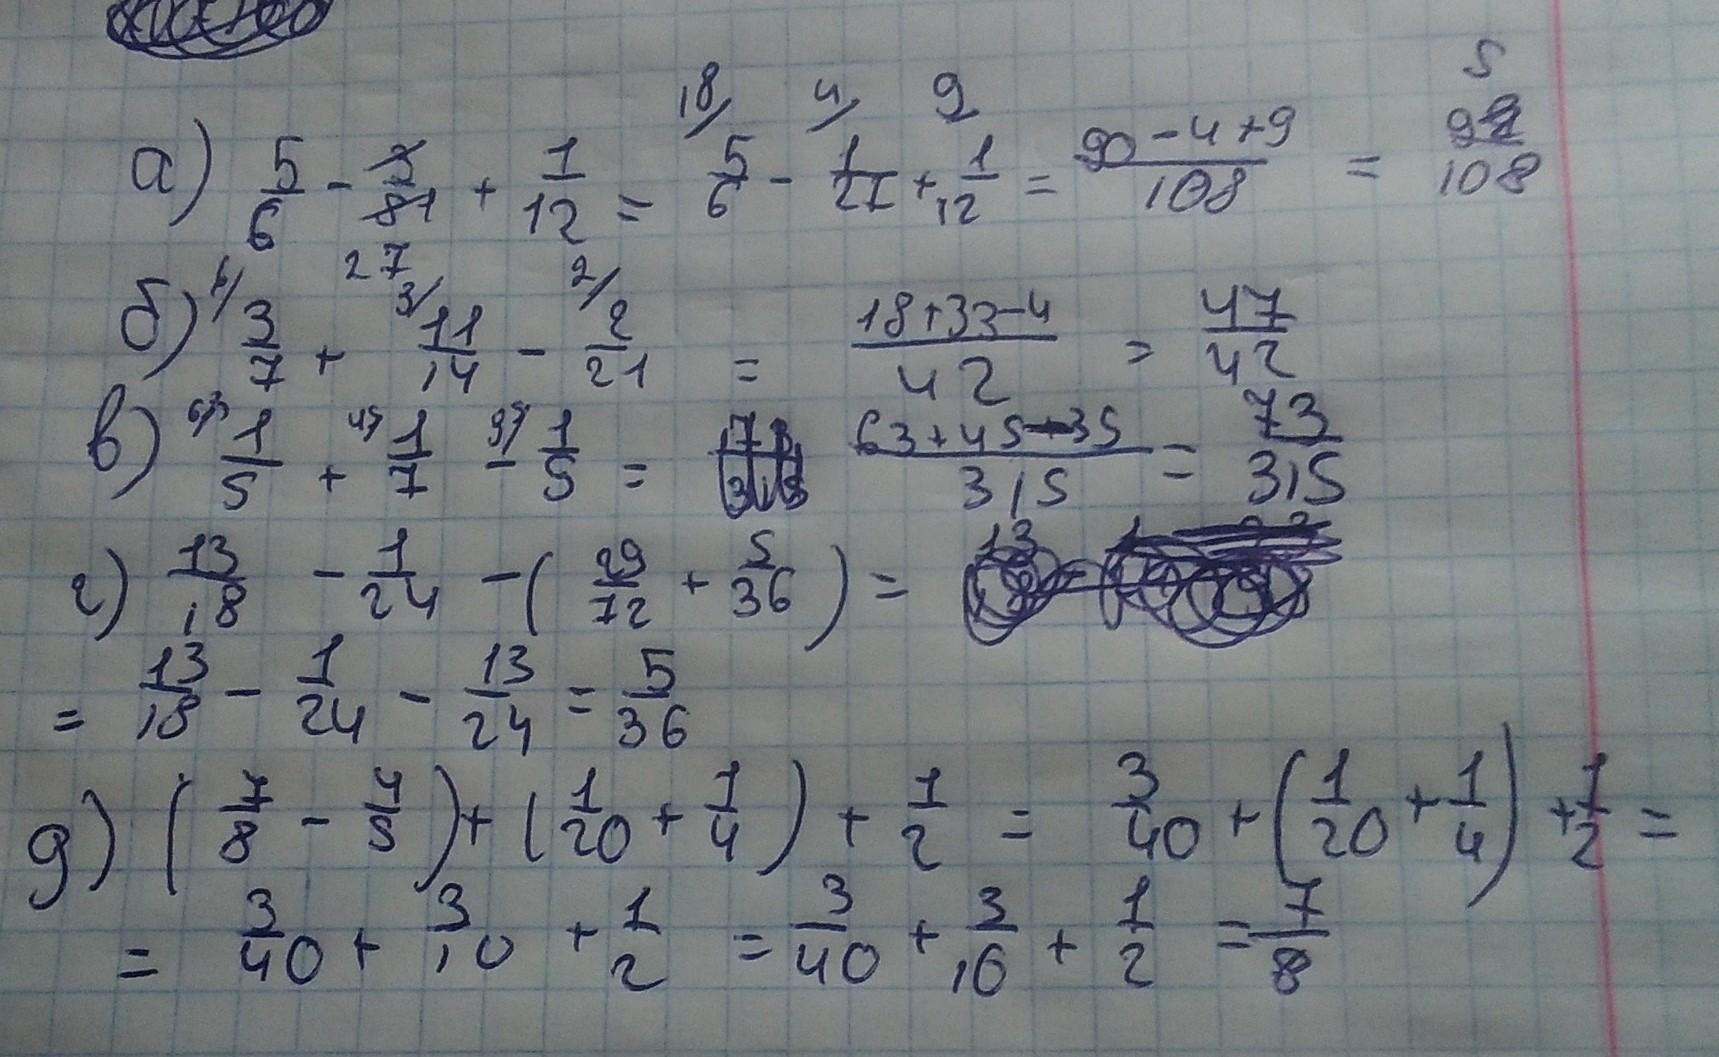 а) 5/6 - 3/81 + 1/12 = 18/ 5/6 - 4/ 1/27 + 9 1/12 = (90-4+9)/108 = 95/108
27
б) 6/ 3/7 + 3/ 11/14 - 2/ 2/21 = (18+33-4)/42 = 47/42
в) 63/ 1/5 + 45/ 1/7 - 1/5 = (63+45-35)/315 = 73/315
г) 13/18 - 1/24 - (29/72 + 5/36) =
= 13/18 - 1/24 - 13/24 = 5/36
д) (7/8 - 4/5) + (1/20 + 1/4) + 1/2 = 3/40 + (1/20 + 1/4) + 1/2 =
= 3/40 + 3/10 + 1/2 = 3/40 + 3/10 + 1/2 = 7/8